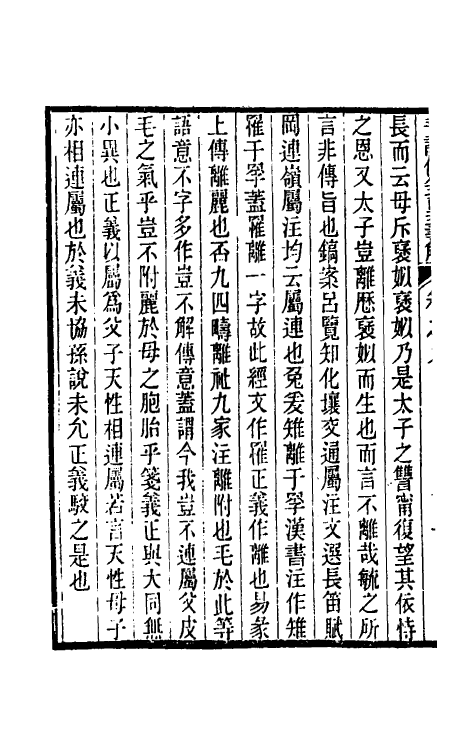 長而云母斥褒姒褒姒乃是太子之讐甯復望其依恃
之恩又太子豈離歷褒姒而生也而言不離哉毓之所
言非傳旨也鎬案呂覽知化壤交通屬注文選長笛賦
岡連嶺屬注均云屬連也兔爰雉離于罦漢書注作雉
罹于罦蓋罹離一字故此經文作罹正義作離也易彖
上傳離麗也否九四疇離祉九家注離附也毛於此等
語意不字多作豈不解傳意蓋謂今我豈不連屬父皮
毛之氣乎豈不附麗於母之胞胎乎箋義正與大同無
小異也正義以屬爲父子天性相連屬若言天性母子
亦相連屬也於義未協孫說未允正義駮之是也